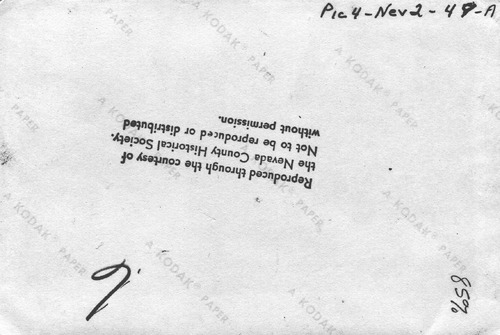 Pic 4 - Nev 2 - 49 - A
Reproduced through the courtesy of
the Nevada County Historical Society.
Not to be reproduced or distributed
without permission.
85%
A KODAK® PAPER
A KODAK® PAPER
A KODAK® PAPER
A KODAK® PAPER
A KODAK® PAPER
A KODAK® PAPER
A KODAK® PAPER
A KODAK® PAPER